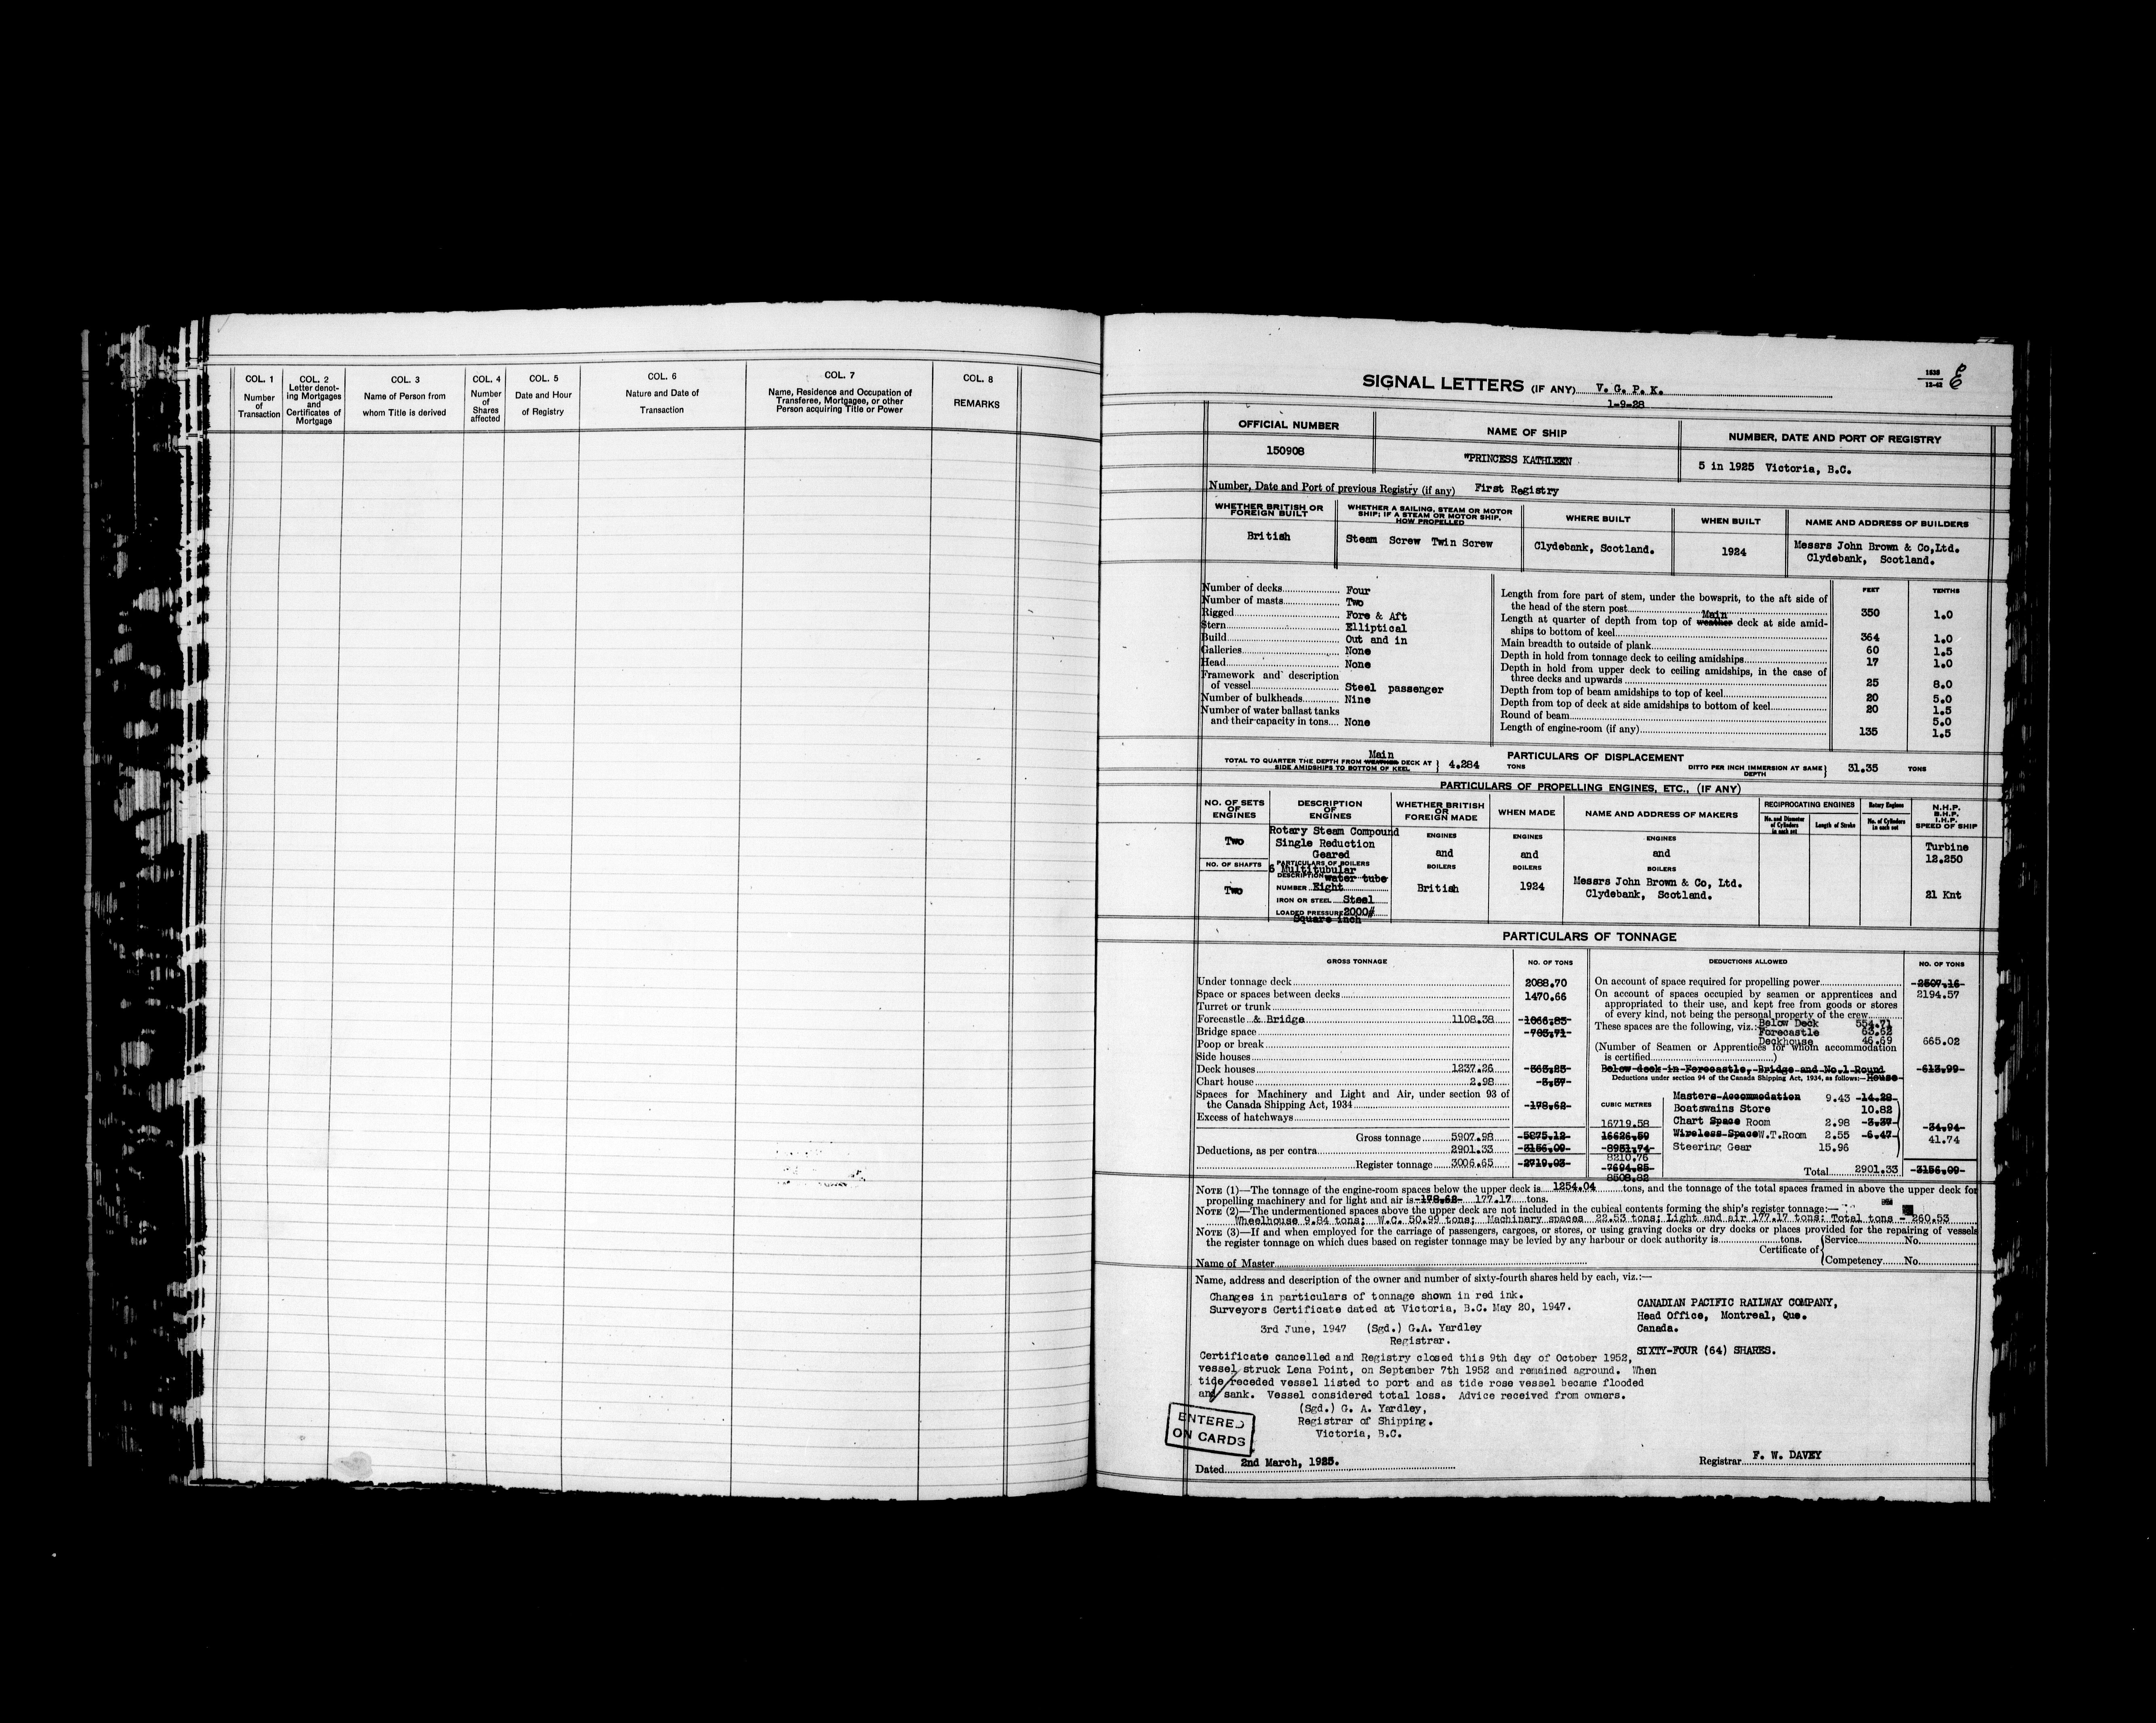 COL. 1
Number
of
Transaction
COL. 2
Letter denot-
ing Mortgages
and
Certificates of
Mortgage
COL. 3
Name of Person from
whom Title is derived
COL. 4
Number
of
Shares
affected
COL. 5
Date and Hour
of Registry
COL. 6
Nature and Date of
Transaction
COL. 7
Name, Residence and Occupation of
Transferee, Mortgagee, or other
Person acquiring Title or Power
COL. 8
REMARKS
SIGNAL LETTERS (IF ANY) V. G. P. K.
1-9-28
OFFICIAL NUMBER
150908
NAME OF SHIP
"PRINCESS KATHLEEN
NUMBER, DATE AND PORT OF REGISTRY
5 in 1925 Victoria, B.C.
Number, Date and Port of previous Registry (if any) First Registry
WHETHER BRITISH OR
FOREIGN BUILT
British
WHETHER A SAILING, STEAM OR MOTOR
SHIP; IF A STEAM OR MOTOR SHIP,
HOW PROPELLED
Steam Screw Twin Screw
WHERE BUILT
Clydebank, Scotland.
WHEN BUILT
1924
NAME AND ADDRESS OF BUILDERS
Messrs John Brown & Co,Ltd.
Clydebank, Scotland.
Number of decks Four
Number of masts Two
Rigged Fore & Aft
Stern Elliptical
Build Out and in
Galleries None
Head None
Framework and description
of vessel Steel passenger
Number of bulkheads Nine
Number of water ballast tanks
and their capacity in tons None
FEET TENTHS
Length from fore part of stem, under the bowsprit, to the aft side of
the head of the stern post 350 1.0
Main
Length at quarter of depth from top of weather deck at side amid-
ships to bottom of keel 364 1.0
Main breadth to outside of plank 60 1.5
Depth in hold from tonnage deck to ceiling amidships 17 1.0
Depth in hold from upper deck to ceiling amidships, in the case of
three decks and upwards 25 8.0
Depth from top of beam amidships to top of keel 20 5.0
Depth from top of deck at side amidships to bottom of keel 20 1.5
Round of beam 5.0
Length of engine-room (if any) 135 1.5
PARTICULARS OF DISPLACEMENT
Main
TOTAL TO QUARTER THE DEPTH FROM WEATHER DECK AT
SIDE AMIDSHIPS TO BOTTOM OF KEEL 4.284 TONS
DITTO PER INCH IMMERSION AT SAME
DEPTH 31.35 TONS
PARTICULARS OF PROPELLING ENGINES, ETC., (IF ANY)
NO. OF SETS
OF
ENGINES
Two
NO. OF SHAFTS
Two
DESCRIPTION
OF
ENGINES
Rotary Steam Compound
Single Reduction
Geared
PARTICULARS OF BOILERS
6 Multitubular
DESCRIPTION water tube
NUMBER Eight
IRON OR STEEL Steel
LOADED PRESSURE 2000#
Square inch
WHETHER BRITISH
OR
FOREIGN MADE
ENGINES
and
BOILERS
British
WHEN MADE
ENGINES
and
BOILERS
1924
NAME AND ADDRESS OF MAKERS
ENGINES
and
BOILERS
Messrs John Brown & Co, Ltd.
Clydebank, Scotland.
RECIPROCATING ENGINES
No. and Diameter
of Cylinders
in each set
Length of Stroke
Rotary Engines
No. of Cylinders
in each set
N.H.P.
B.H.P.
I.H.P.
SPEED OF SHIP
Turbine
12.250
21 Knt
PARTICULARS OF TONNAGE
GROSS TONNAGE NO. OF TONS
Under tonnage deck 2088.70
Space or spaces between decks 1470.66
Turret or trunk
Forecastle & Bridge 1108.38 -1066.83-
Bridge space -703.71-
Poop or break
Side houses
Deck houses 1237.26 -363.23-
Chart house 2.98 -3.37-
Spaces for Machinery and Light and Air, under section 93 of
the Canada Shipping Act, 1934 -178.62-
Excess of hatchways
CUBIC METRES
16719.58
Gross tonnage 5907.98 -5875.12- 16626.59
Deductions, as per contra 2901.33 -3156.09- -8931.74-
8210.76
Register tonnage 3006.65 -2719.03- -7694.85-
8508.82
DEDUCTIONS ALLOWED NO. OF TONS
On account of space required for propelling power -2507.16-
2194.57
On account of spaces occupied by seamen or apprentices and
appropriated to their use, and kept free from goods or stores
of every kind, not being the personal property of the crew
These spaces are the following, viz.: Below Deck 554.71
Forecastle 63.62
Deckhouse 46.69 665.02
(Number of Seamen or Apprentices for whom accommodation
is certified )
Below deck in Forecastle, Bridge and No.1 Round -613.99-
Deductions under section 94 of the Canada Shipping Act, 1934, as follows:— House
Masters Accommodation 9.43 -14.28-
Boatswains Store 10.82
Chart Space Room 2.98 -3.37- -34.94-
Wireless Space W.T.Room 2.55 -6.47- 41.74
Steering Gear 15.96
Total 2901.33 -3156.09-
NOTE (1)—The tonnage of the engine-room spaces below the upper deck is 1254.04 tons, and the tonnage of the total spaces framed in above the upper deck for
propelling machinery and for light and air is -178.62- 177.17 tons.
NOTE (2)—The undermentioned spaces above the upper deck are not included in the cubical contents forming the ship's register tonnage:—
Wheelhouse 9.84 tons; W.C. 50.99 tons; Machinery spaces 22.53 tons; Light and air 177.17 tons; Total tons - 260.53
NOTE (3)—If and when employed for the carriage of passengers, cargoes, or stores, or using graving docks or dry docks or places provided for the repairing of vessels
the register tonnage on which dues based on register tonnage may be levied by any harbour or dock authority is tons.
Certificate of Service No.
Competency No.
Name of Master
Name, address and description of the owner and number of sixty-fourth shares held by each, viz.:—
Changes in particulars of tonnage shown in red ink.
Surveyors Certificate dated at Victoria, B.C. May 20, 1947.
3rd June, 1947 (Sgd.) G.A. Yardley
Registrar.
CANADIAN PACIFIC RAILWAY COMPANY,
Head Office, Montreal, Que.
Canada.
SIXTY-FOUR (64) SHARES.
Certificate cancelled and Registry closed this 9th day of October 1952,
vessel struck Lena Point, on September 7th 1952 and remained aground. When
tide receded vessel listed to port and as tide rose vessel became flooded
and sank. Vessel considered total loss. Advice received from owners.
(Sgd.) G. A. Yardley,
Registrar of Shipping.
Victoria, B.C.
ENTERED
ON CARDS
Dated 2nd March, 1925.
Registrar F. W. DAVEY